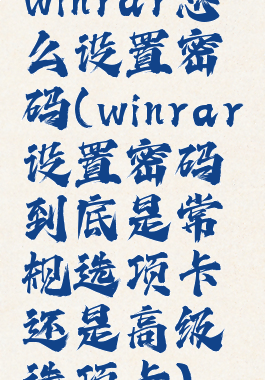 winrar怎
么设置密
码(winrar
设置密码
到底是常
规选项卡
还是高级
选项卡)